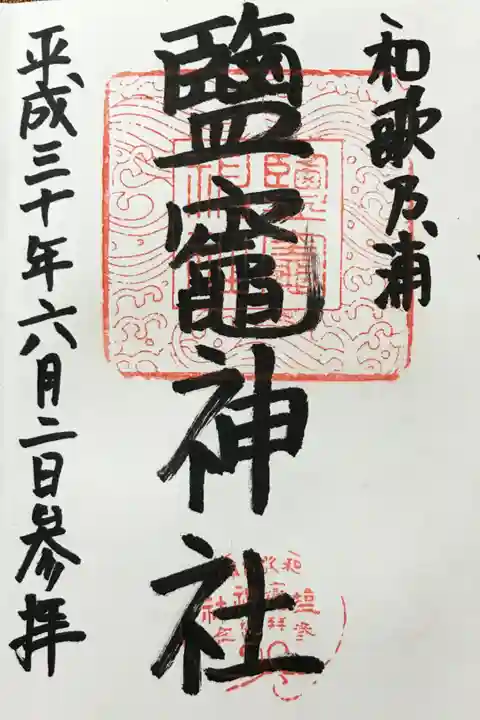 和歌乃浦
鹽竈神社
平成三十年六月二日參拝